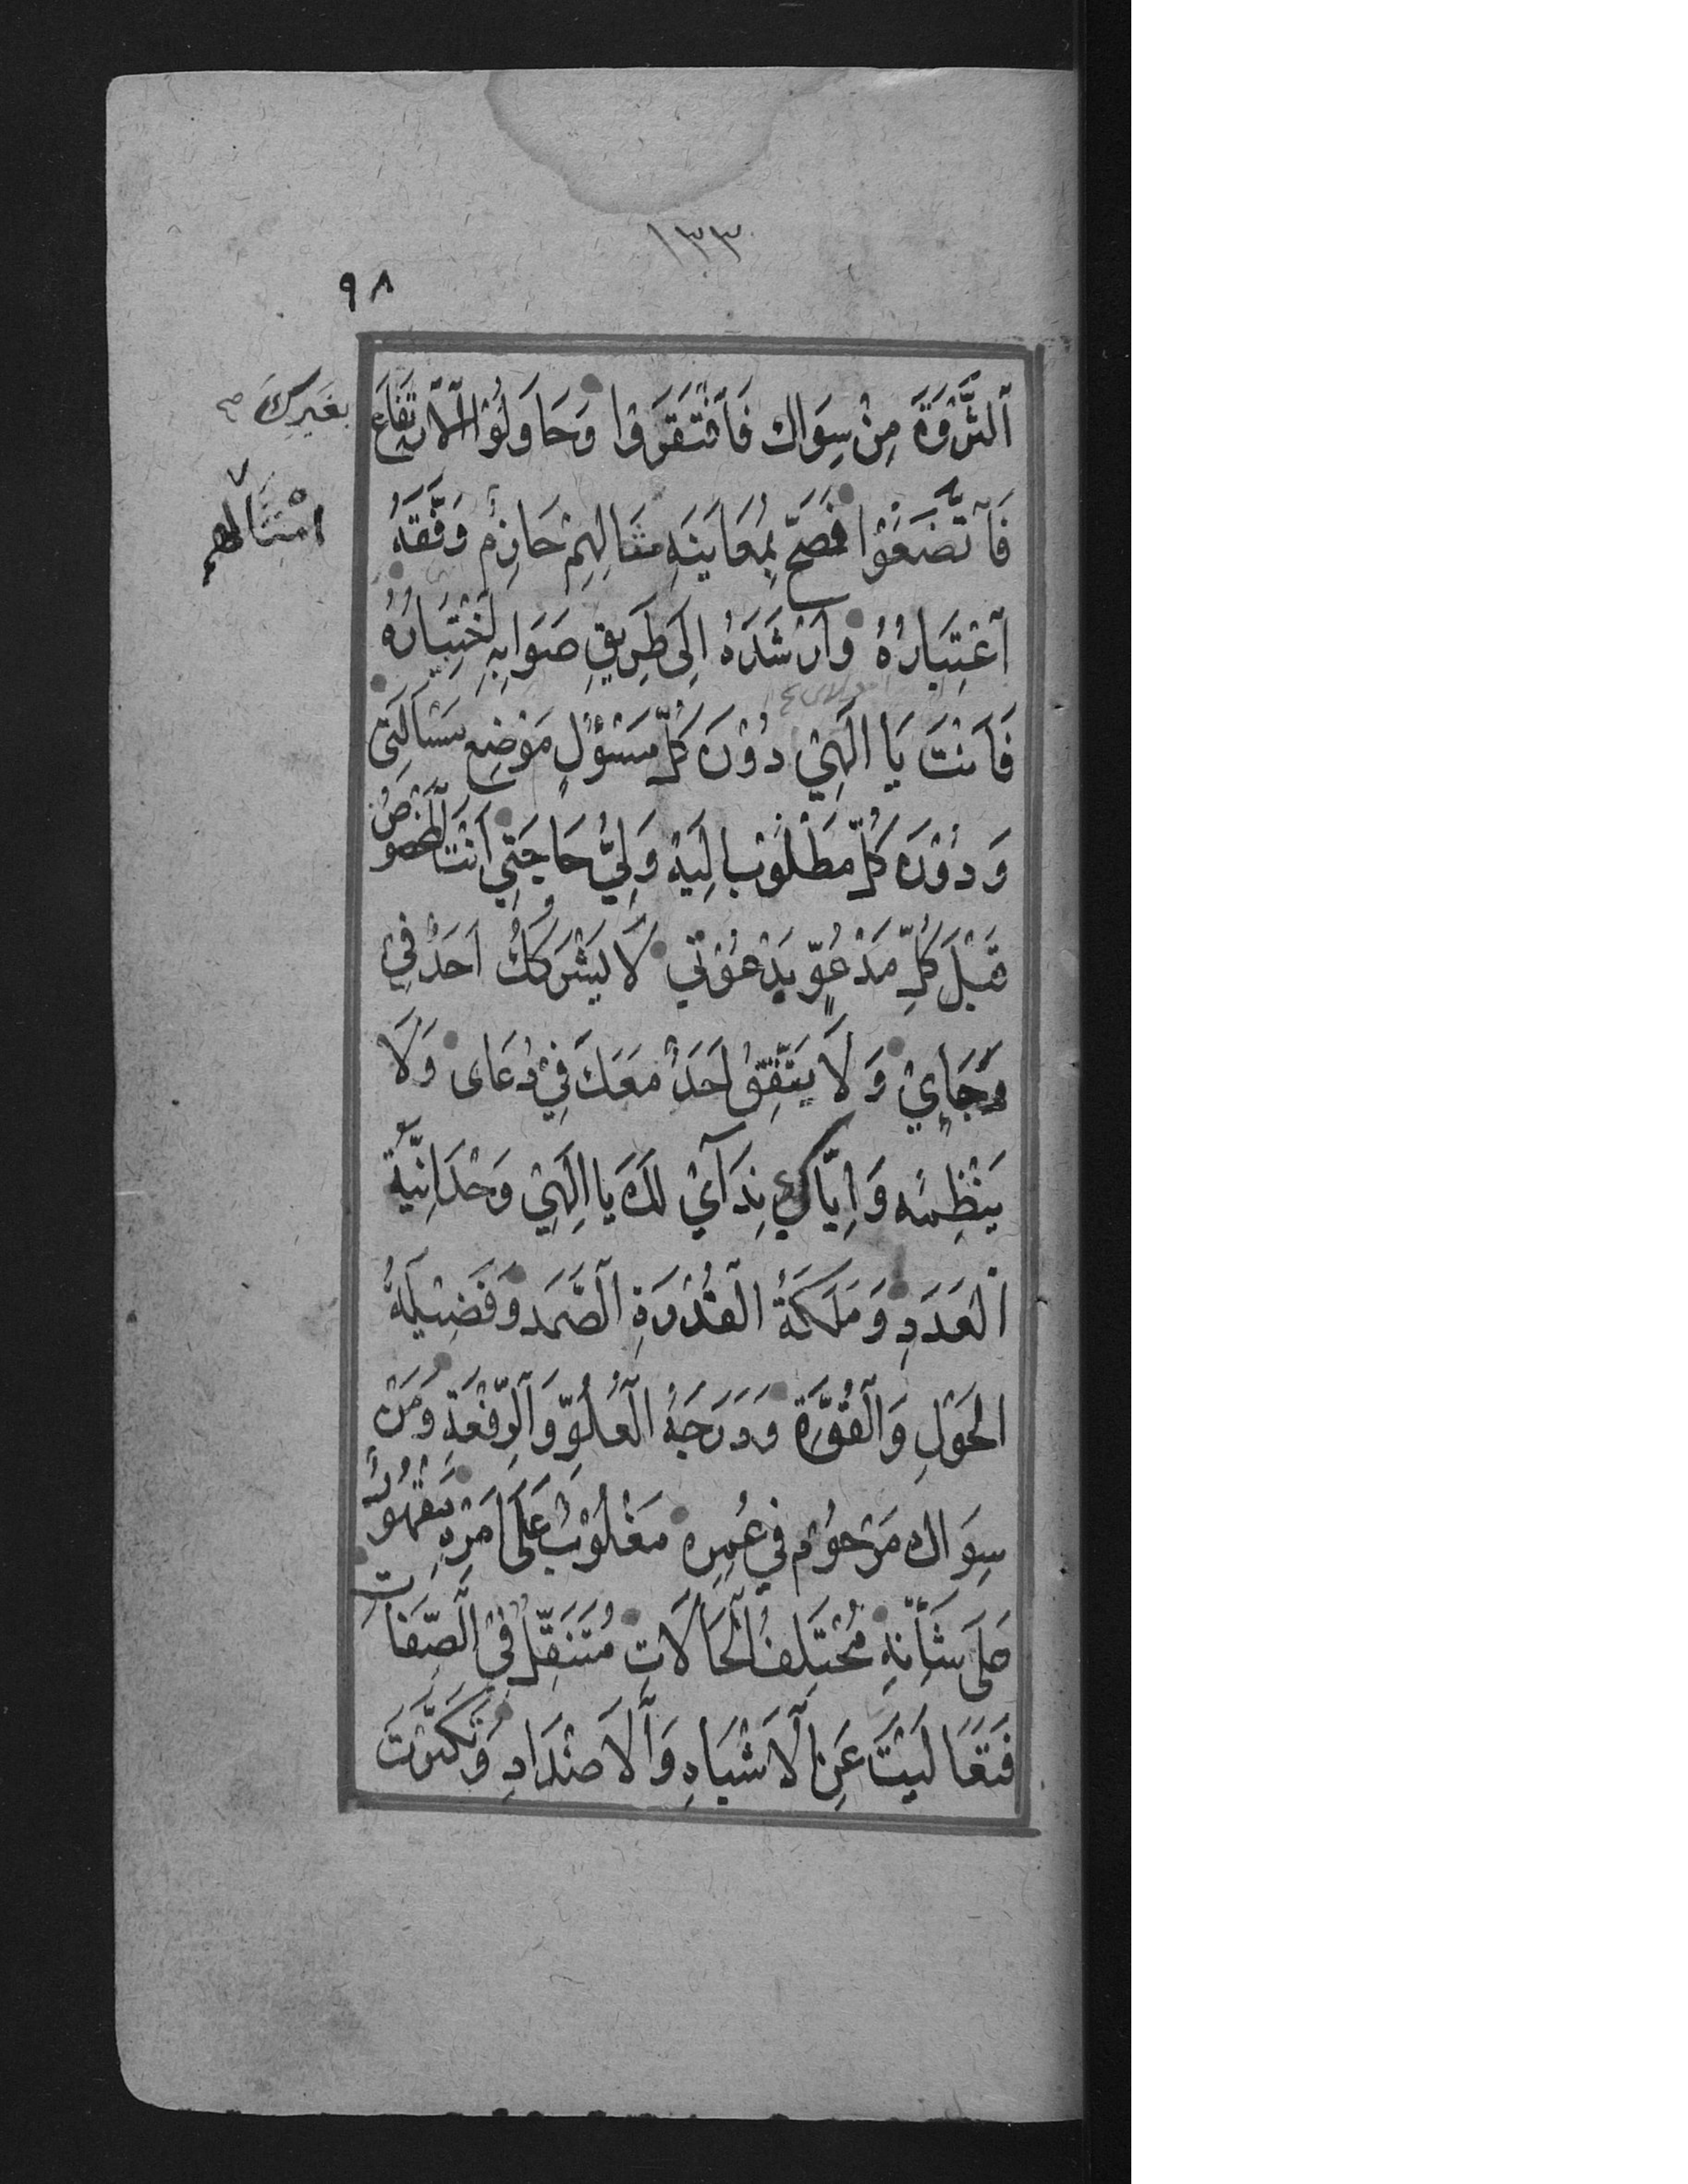 ١٣٣
٩٨
ٱلثَّرْوَةَ مِنْ سِوَاكَ فَٱفْتَقَرُوا وَحَاوَلُوْا ٱلْاِرْتِفَاعَ
بِغَيْرِكَ
فَٱتَّضَعُوْا فَصَحَّ بِمُعَايَنَةِ مثالِهِمْ حَازِمٌ وَفَّقَهُ
امْثَالهم
اعْتِبَارُهُ وَاَرْشَدَهُ اِلَى طَرِيقِ صَوَابِهِ اخْتِبَارُهُ
فَاَنْتَ يَا اِلٰهِيْ دُوْنَ كُلِّ مَسْئُوْلٍ مَوْضِعُ مَسْأَلَتِيْ
وَ دُوْنَ كُلِّ مَطْلُوْبٍ اِلَيْهِ وَلِيُّ حَاجَتِي اَنْتَ الْمَخْصُوْصُ
قَبْلَ كُلِّ مَدْعُوٍّ بِدَعْوَتي لَا يَشْرَكُكَ اَحَدٌ فِيْ
رَجَايِيْ وَ لَا يَتَّفِقُ اَحَدٌ مَعَكَ فِيْ دُعَاى وَ لَا
يَنْظِمُه وَ اِيَّاكَ نِدَآئِيْ لَكَ يَا اِلٰهِيْ وَحْدَانِيَّةُ
الْعَدَدِ وَ مَلَكَةُ الْقُدْرَةِ الصَّمَدِ وَ فَضِيْلَةُ
الْحَوْلِ وَ الْقُوَّةِ وَ دَرَجَةُ الْعُلُوِّ وَ الرِّفْعَةِ وَ مَنْ
سِوَاكَ مَرْحُوْمٌ فِي عُمِرِه مَغْلُوْبٌ عَلَى اَمْرِهِ مَقْهُوْرٌ
عَلى شَأْنِهِ مُخْتَلِفُ الْحَالَاتِ مُتَنَقِّلٌ فِيْ الصِّفَاتِ
فَتَعَالَيْتَ عَنِ الْاَشْبَاهِ وَ الْاَضْدَادِ وَ تَكَبَّرْتَ